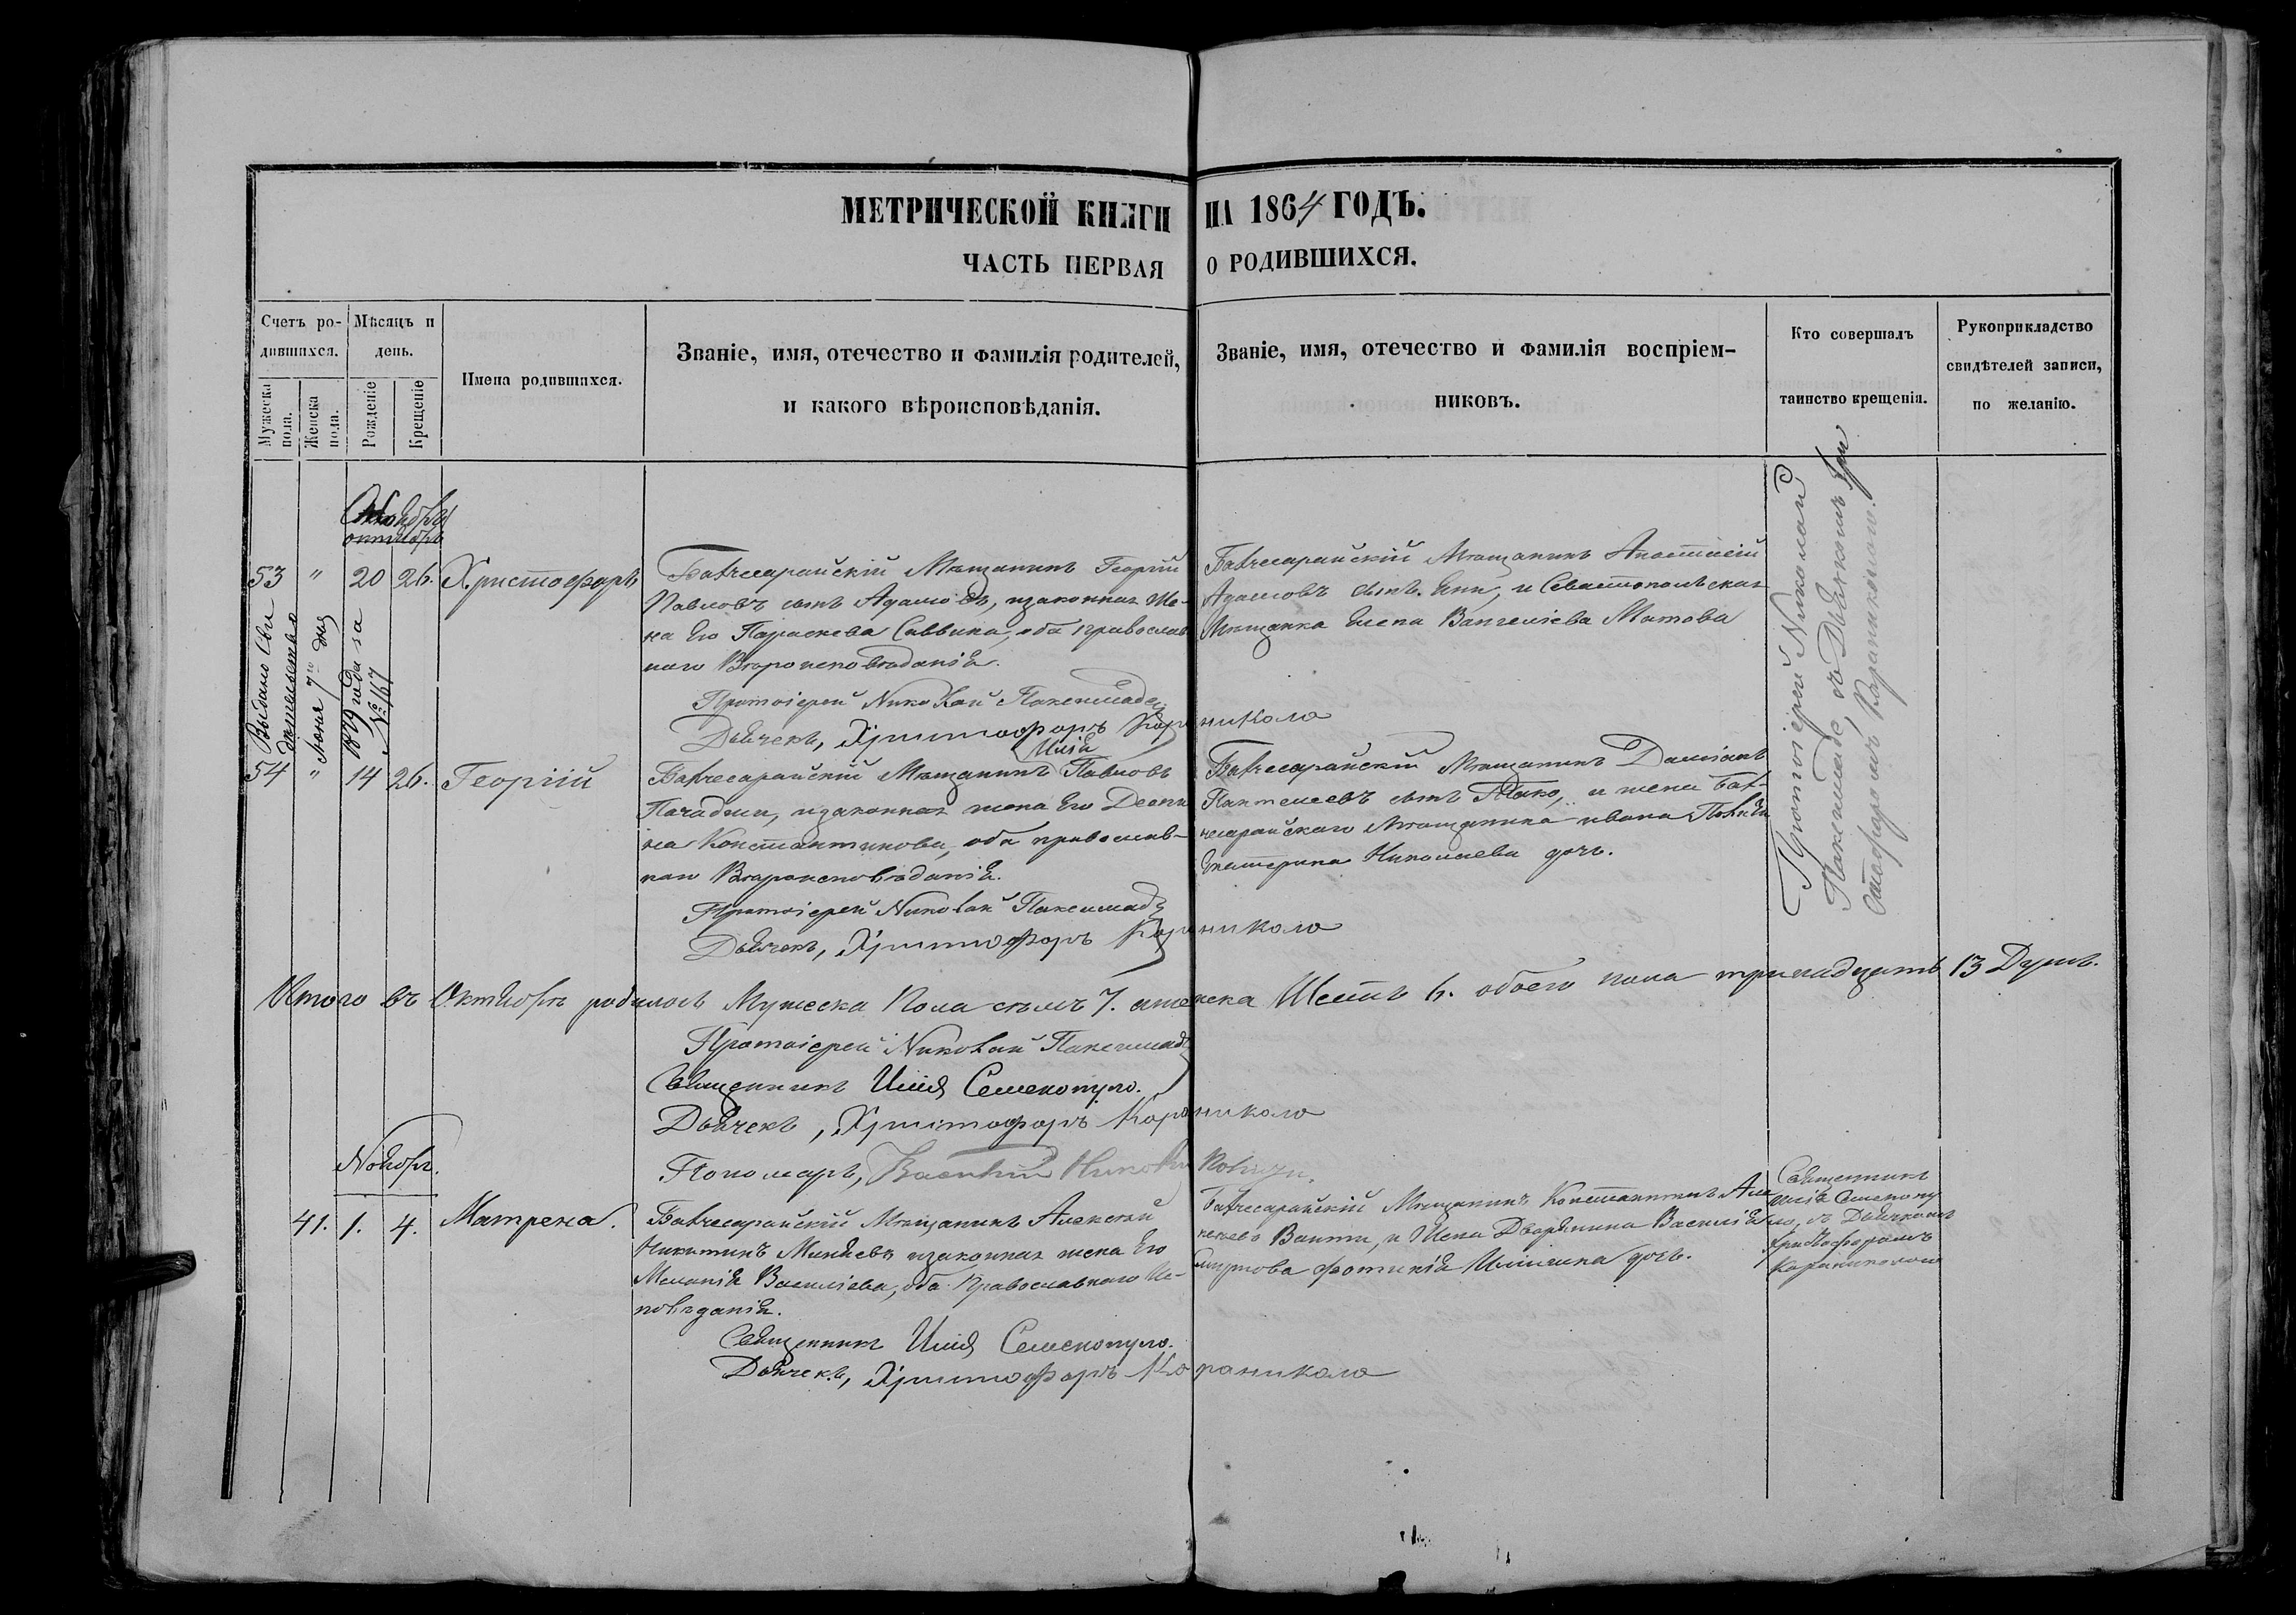 МЕТРИЧЕСКОЙ КНИГИ НА 1864 ГОДЪ.
ЧАСТЬ ПЕРВАЯ О РОДИВШИХСЯ.
Счетъ ро-
дившихся.
Мѣсяцъ и
день.
Мужеска
пола.
Женска
пола.
Рожденіе
Крещеніе
Имена родившихся.
Званіе, имя, отечество и фамилія родителей,
и какого вѣроисповѣданія.
Званіе, имя, отечество и фамилія воспріем-
никовъ.
Кто совершалъ
таинство крещенія.
Рукоприкладство
свидѣтелей записи,
по желанію.
Октября
53 " 20 26. Христофоръ
Бахчесарайскій Мѣщанинъ Георгій
Павловъ сынъ Адамовъ, изаконная Же-
на Его Параскева Саввина, оба православ
наго Вѣроисповѣданія.
Протоіерей Николай Паксимаде
Дьячекъ, Христофоръ Караникола
Бахчесарайскій Мѣщанинъ
Адамовъ сынъ и Севастопольская
Мѣщанка Елена Вангеліева
Выдано Сви
дѣтельство
Іюня 7го дня
1879 года за
№ 167
54 " 14 26. Георгій
Илія
Бахчесарайскій Мѣщанинъ Павловъ
Пачаджи, изаконная жена Его
на Константинова, оба православ-
наго Вѣроисповѣданія.
Протоіерей Николай Паксимаде
Дьячекъ, Христофоръ Караникола
Бахчесарайскій Мѣщанинъ Даміанъ
Пантелеевъ сынъ и жена Бах-
чесарайскаго Мѣщанина ивана
Екатерина Николаева дочь.
Протоіерей Николай
Паксимаде, съ Дьячкомъ Хри
стофоромъ Караниколою.
Итого въ Октябрѣ родилось Мужеска Пола семь 7. иженска Шесть 6. обоего пола тринадцать 13 Душъ.
Протоіерей Николай Паксимаде
Священникъ Илія Семенопуло.
Дьячекъ, Христофоръ Караникола
Пономарь, Василій
Ноябрь.
41. 1. 4. Матрена.
Бахчесарайскій Мѣщанинъ Алексѣй
Никитинъ изаконная жена Его
Меланія Василіева, оба Православнаго Ис-
повѣданія.
Священникъ Илія Семенопуло.
Дьячекъ, Христофоръ Караникола
Бахчесарайскій Мѣщанинъ Константинъ Але
ксеевъ и Жена Дворянина Василія
Смирнова Фотинія Иліична дочь.
Священникъ
Илія Семенопу
ло, съ Дьячкомъ
Христофоромъ
Караниколою